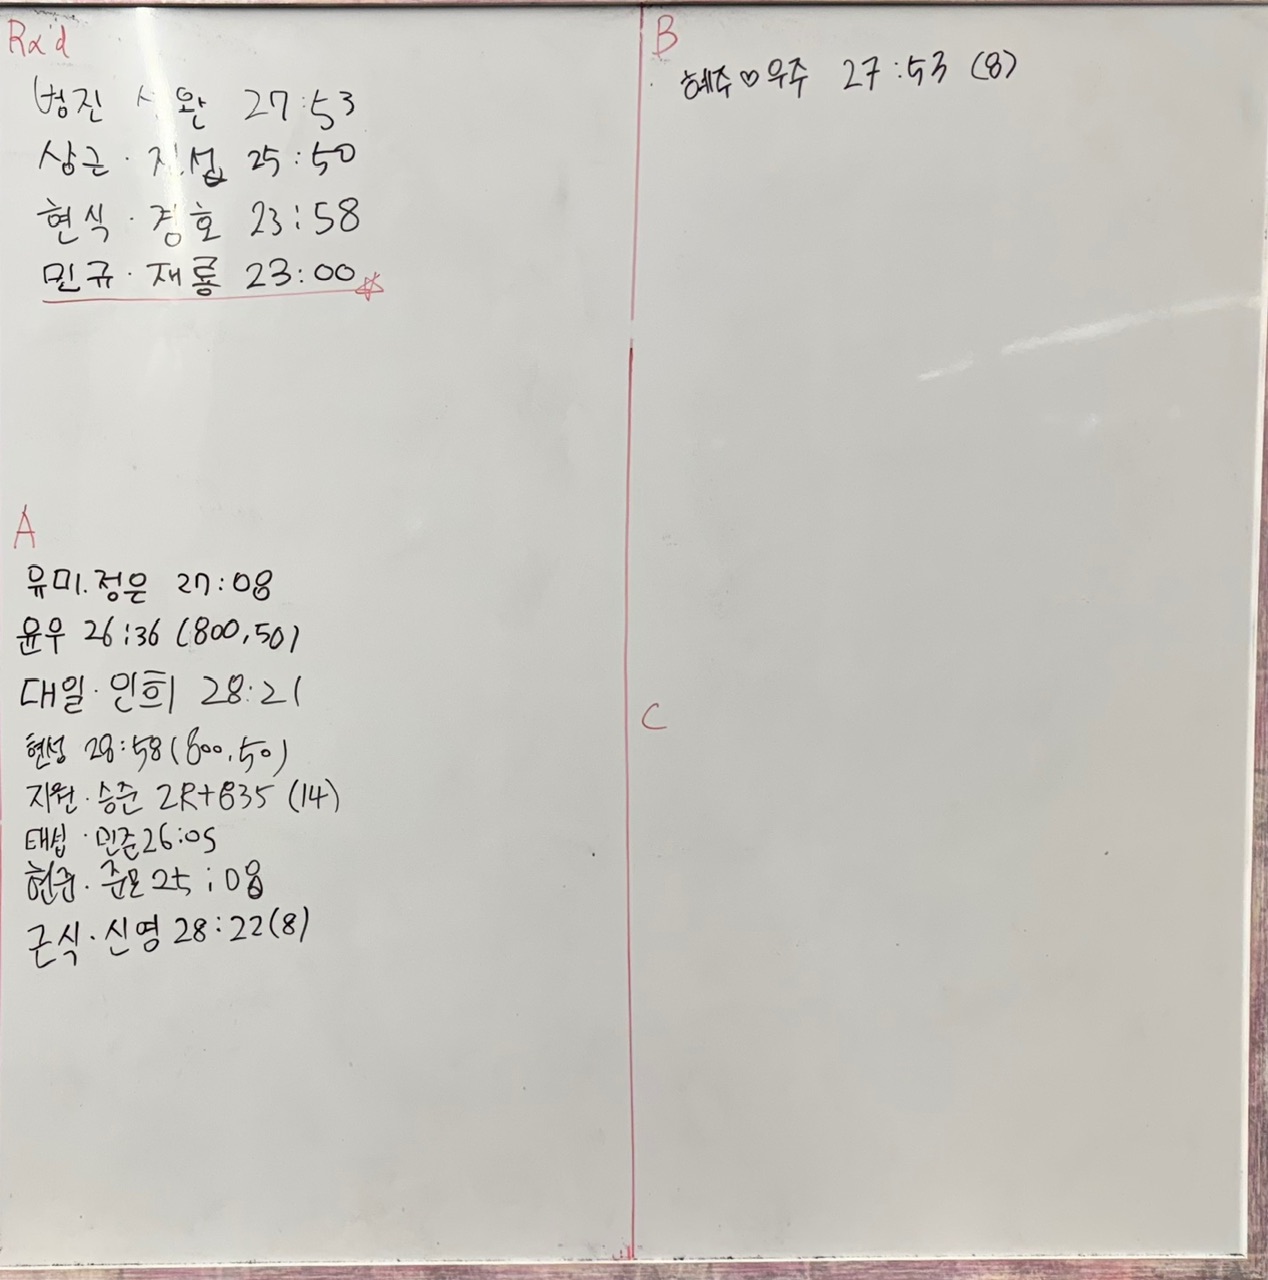 Rx'd
범진 완 27:53
상근 · 진섭 25:50
현식 · 경호 23:58
민규 · 재룡 23:00
A
유미.정은 27:08
윤우 26:36 (800,50)
대일 · 인희 28:21
현성 28:58 (800,50)
지원 · 승준 2R+835 (14)
태섭 · 민준 26:05
현준 · 준모 25:08
근식 · 신영 28:22(8)
B
혜주♡우주 27:53 (8)
C